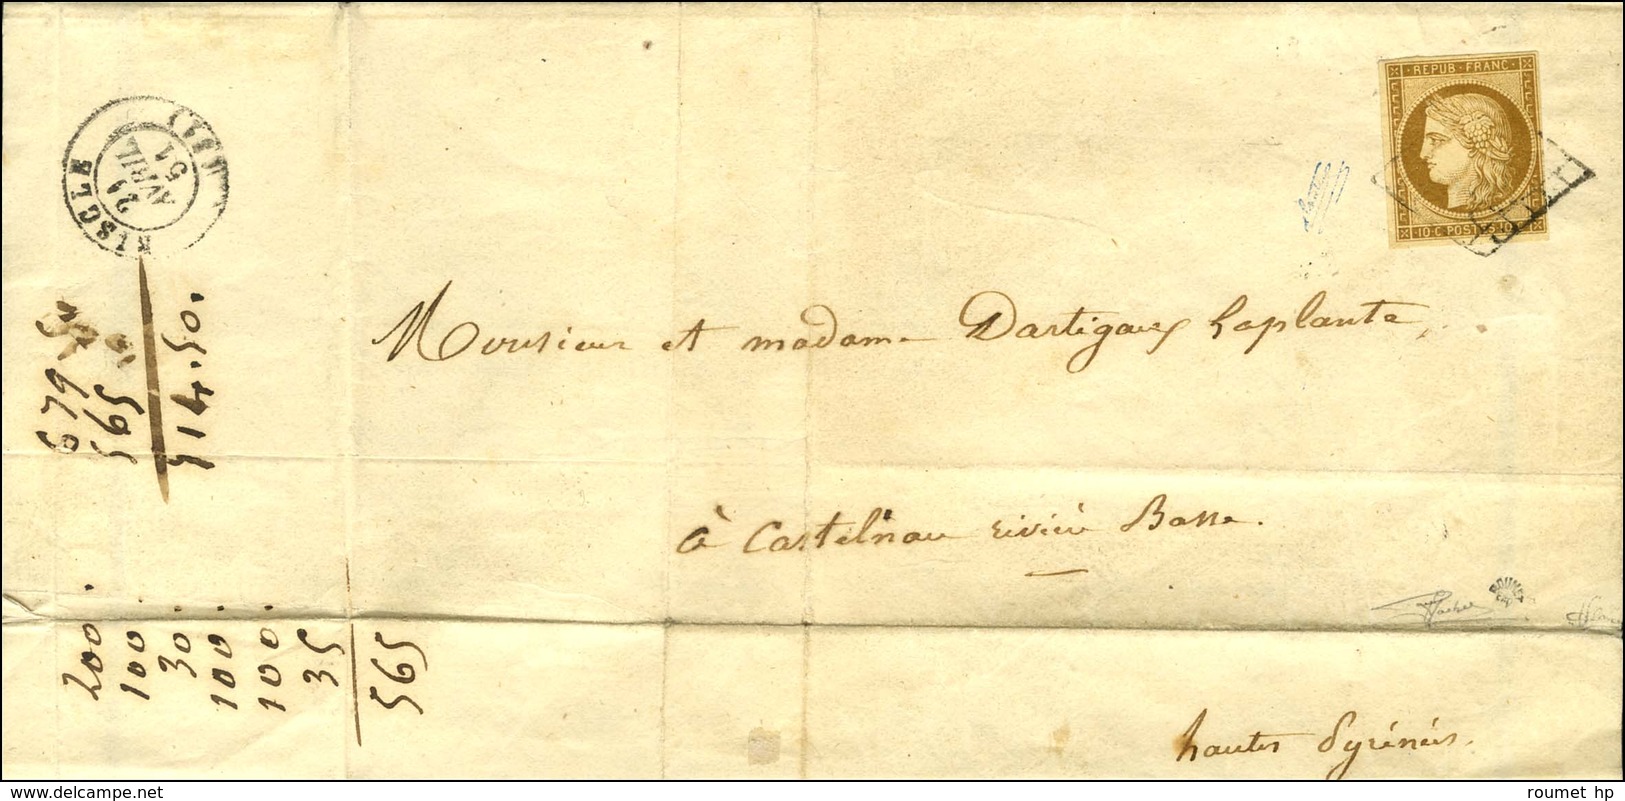 REPUB·FRANC·
10·C·POSTES·10·
RISCLE
21
AVRIL
51
Monsieur et madame Dartigaux Laplante,
à Castelnau rivière Basse.
hautes Pyrénées.
679
565
514.50.
200.
100.
30.
100.
100.
35
565
ROUMET
roumet hp